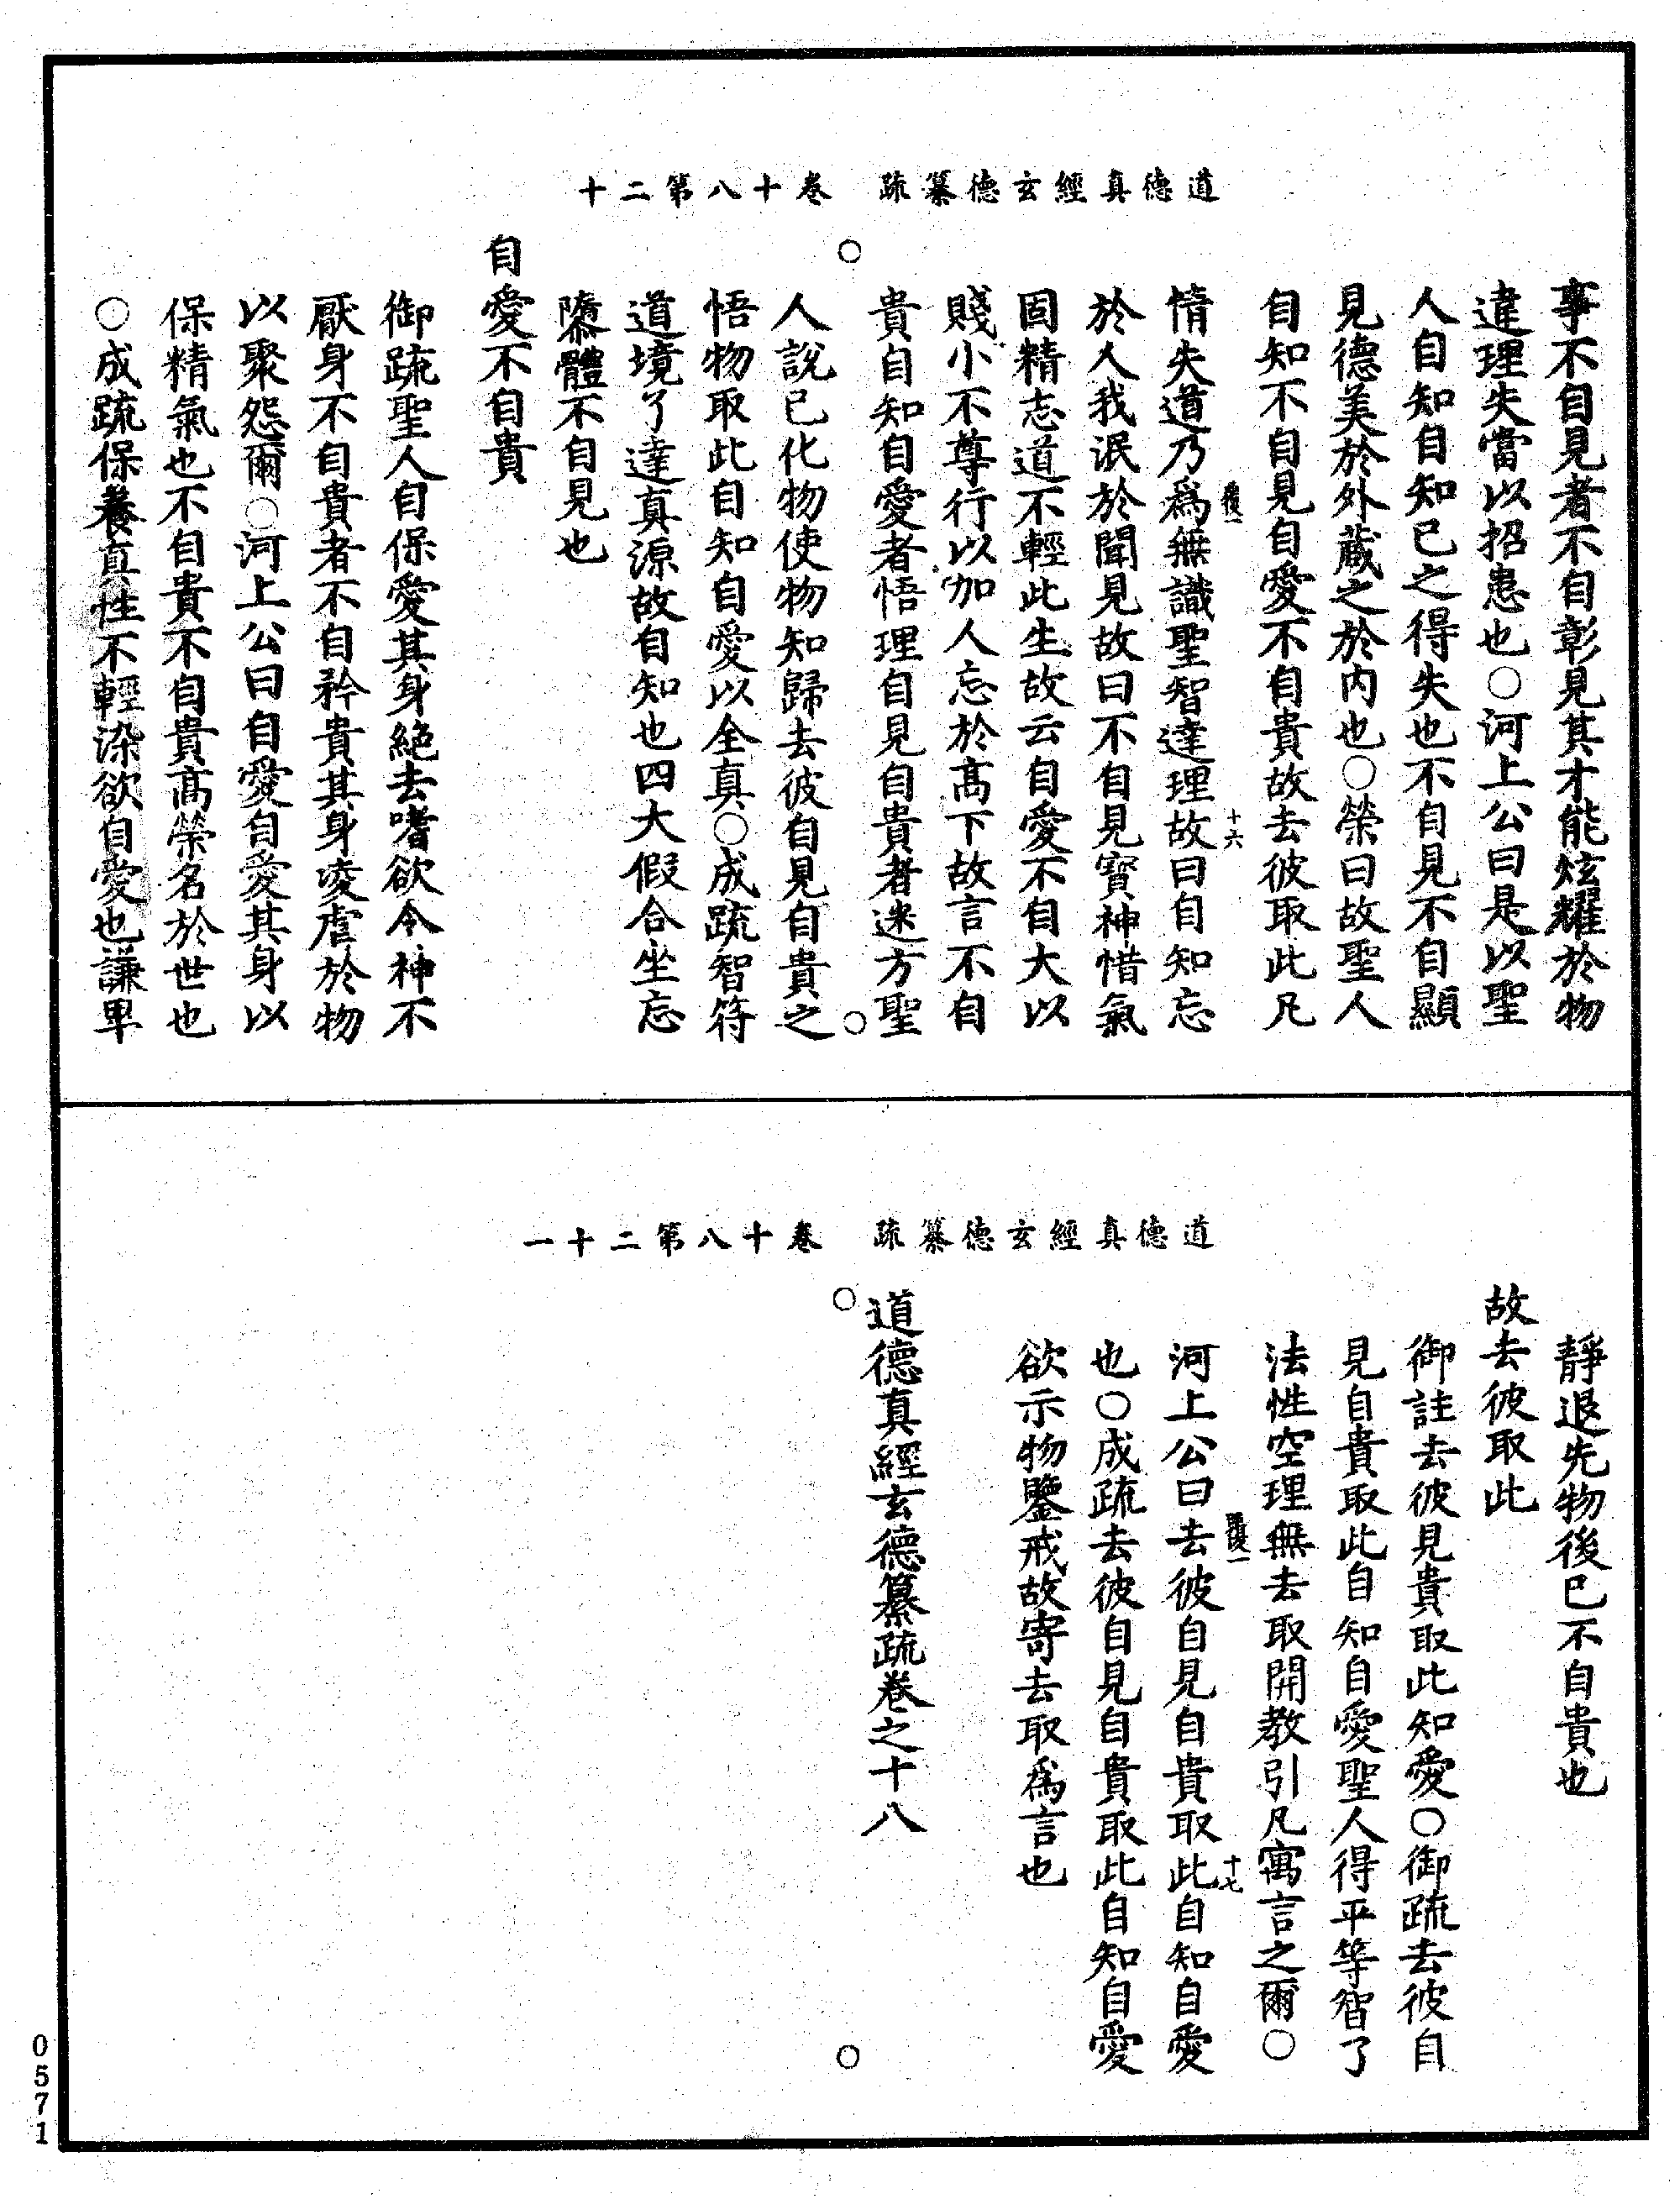 道德真經玄德纂疏　卷十八第二十
事不自見者不自彰見其才能炫耀於物
違理失當以招患也○河上公曰是以聖
人自知自知已之得失也不自見不自顯
見德美於外蔵之於内也○榮曰故聖人
自知不自見自愛不自貴故去彼取此凡
情失道乃爲無識聖智達理故曰自知忘
於人我泯於聞見故曰不自見寳神惜氣
固精志道不輕此生故云自愛不自大以
賤小不尊行以加人忘於髙下故言不自
貴自知自愛者悟理自見自貴者迷方聖
人說已化物使物知歸去彼自見自貴之
悟物取此自知自愛以全真○成疏智符
道境了達真源故自知也四大假合坐忘
隳體不自見也
自愛不自貴
御疏聖人自保愛其身絶去嗜欲令神不
厭身不自貴者不自矜貴其身凌虐於物
以聚怨爾○河上公曰自愛自愛其身以
保精氣也不自貴不自貴髙榮名於世也
○成疏保養真性不輕染欲自愛也謙卑
道德真經玄德纂疏　卷十八第二十一
靜退先物後已不自貴也
故去彼取此
御註去彼見貴取此知愛○御疏去彼自
見自貴取此自知自愛聖人得平等智了
法性空理無去取開教引凡寓言之爾○
河上公曰去彼自見自貴取此自知自愛
也○成疏去彼自見自貴取此自知自愛
欲示物鑒戒故寄去取爲言也
道德真經玄德纂疏卷之十八
十六
十七
0571